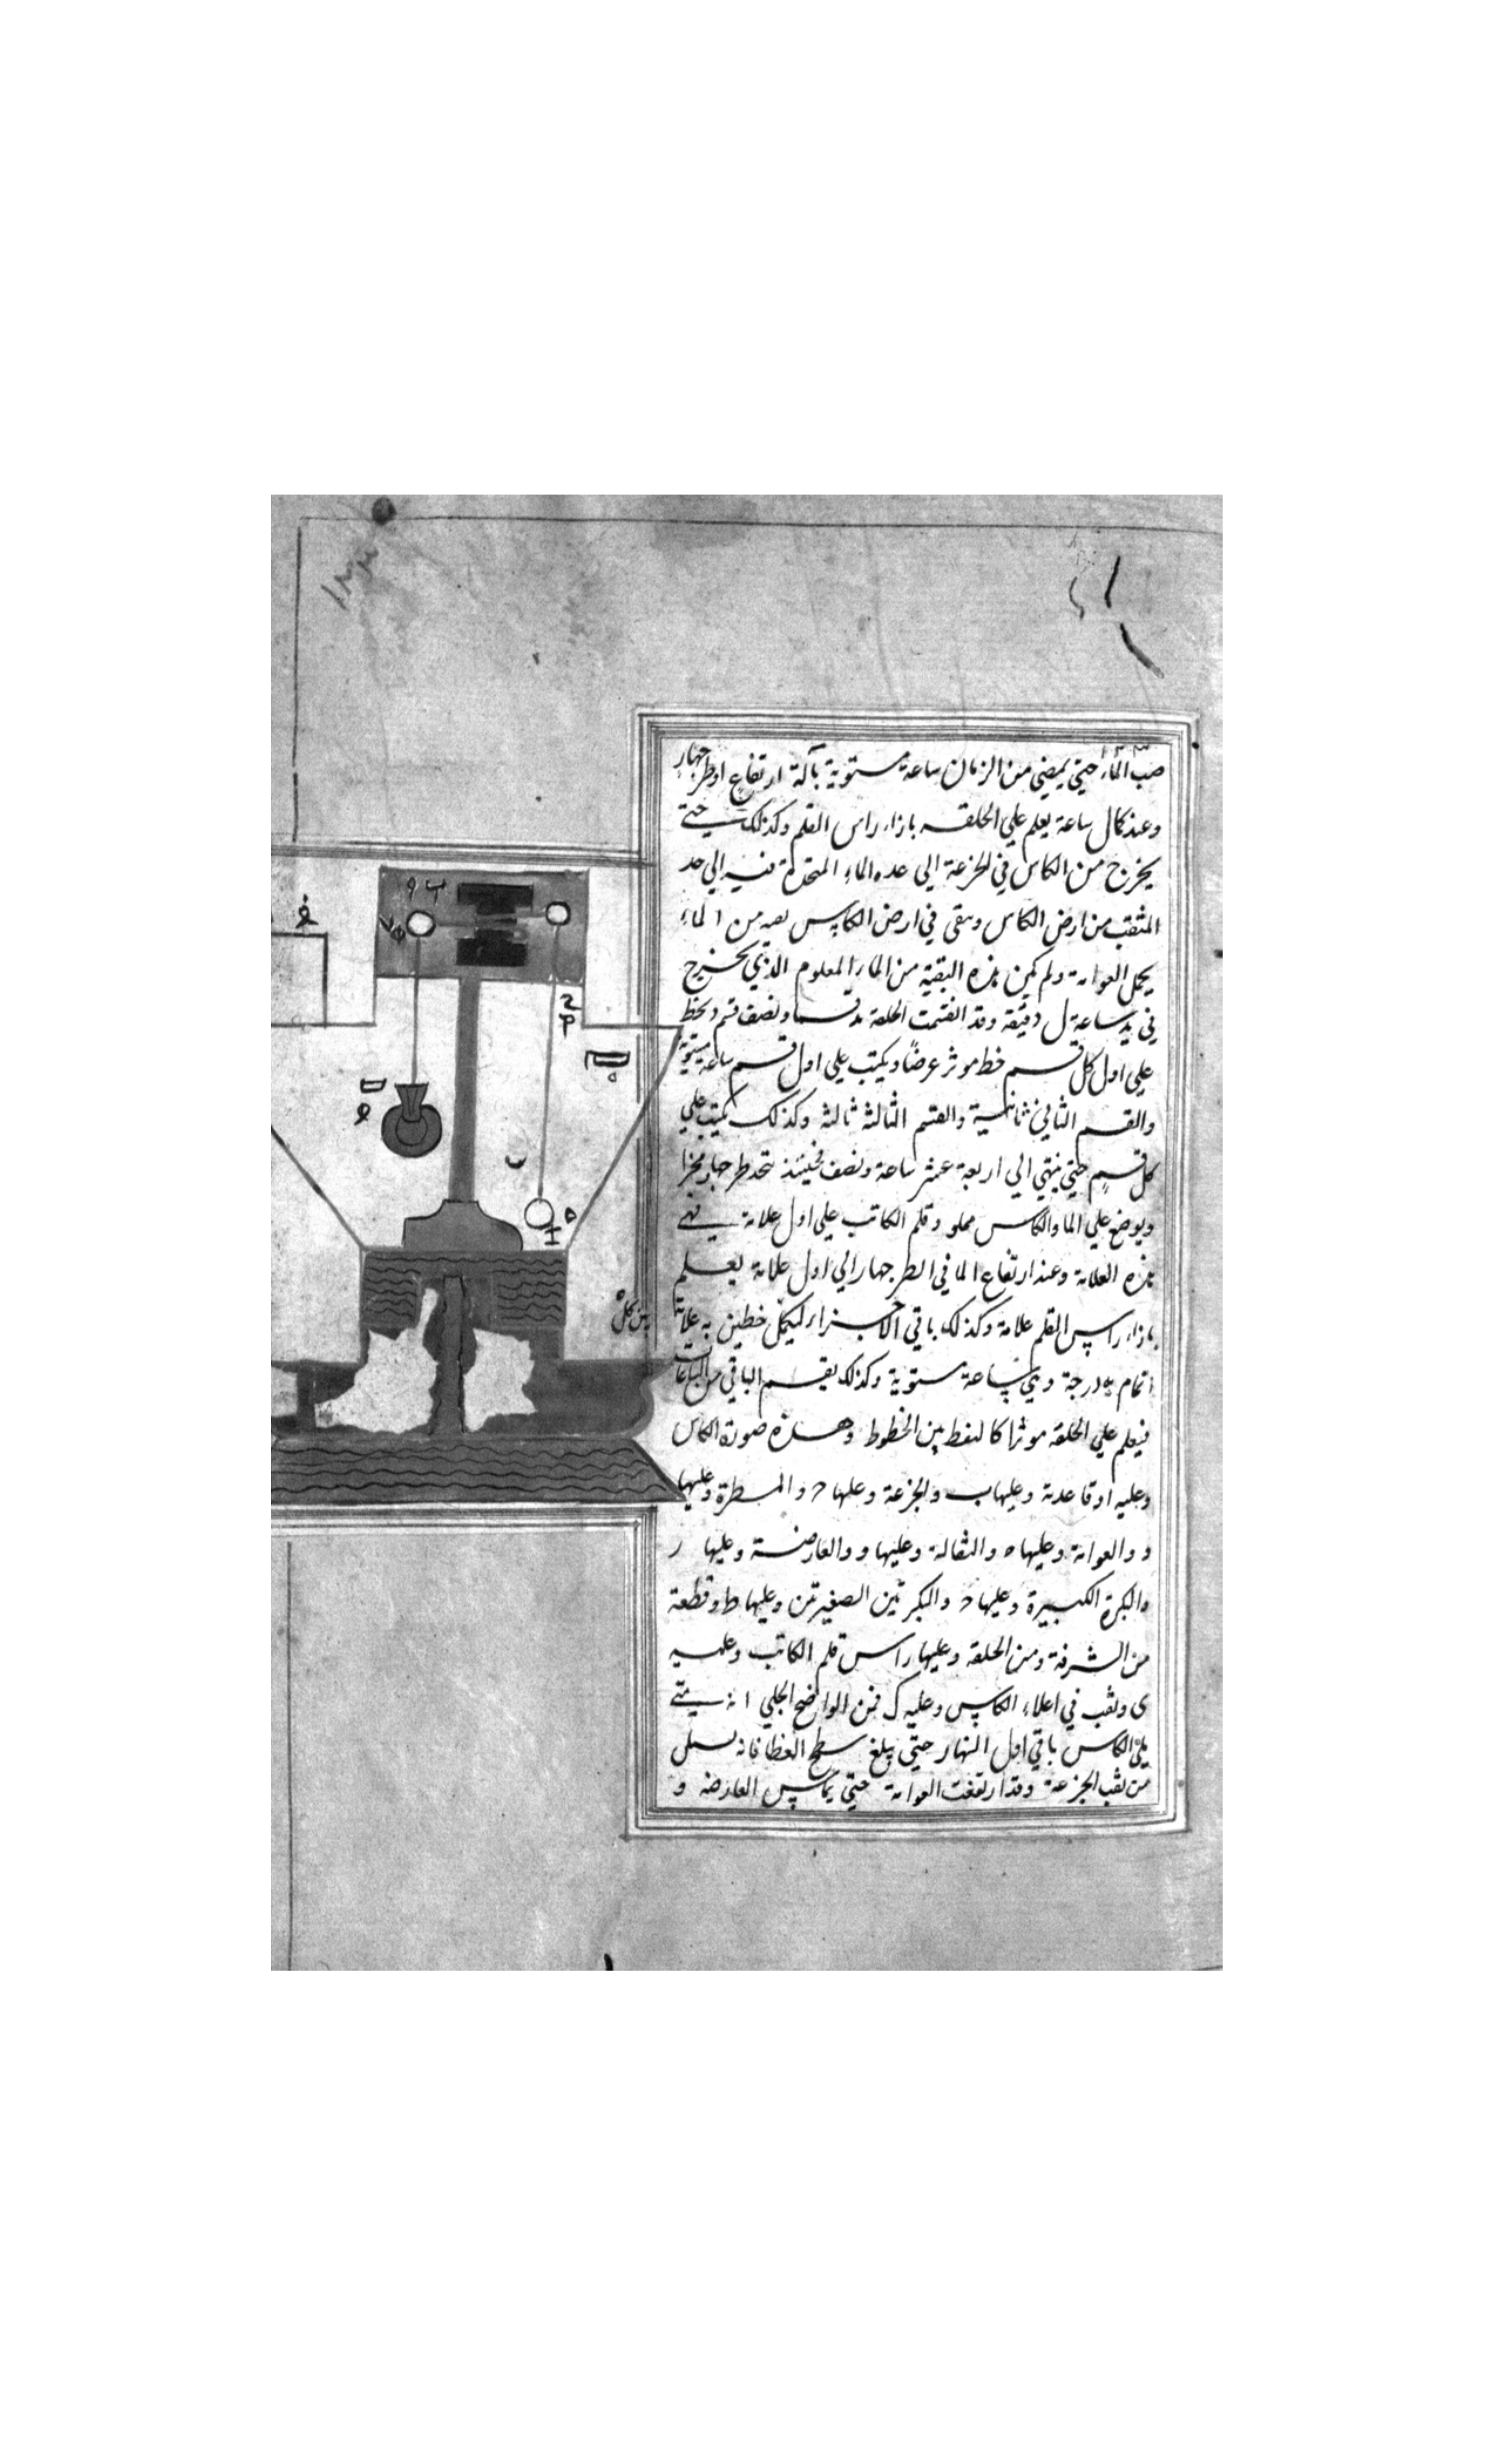 صب الماء حتي يمضي من الزمان ساعة مستوية بآلة ارتفاع او طرجهار
وعند كمال ساعة يعلم علي الحلقه بازاء راس القلم وكذلك حتي
يخرج من الكاس في الجزعة الي عده الماء فيه الي حد
المثقب من ارض الكاس وبقي في ارض الكاس من الماء
يحمل العوامة ولم يكن هذه البقية من الماء المعلوم الذي يخرج
في يد ساعة ل دقيقة وقد انقسمت الحلقة يد قسما ونصف قسم ويخط
علي اول كل قسم خط موثر عرضاً ويكتب علي اول قسم ساعة مستوية
والقسم الثاني ثانية والقسم الثالثه ثالثه وكذلك يكتب علي
كل قسم حتي ينتهي الي اربعة عشر ساعة ونصف فحينئذ يتخذ طرجهار مجزا
ويوضع علي الما والكاس مملو وقلم الكاتب علي اول علامة
هذه العلامة وعند ارتفاع الما في الطرجهار الي اول علامة يعلم
بازاء راس القلم علامة وكذلك باقي الاجزاء ليكمل خطين يه علامة
بين كل
تمام يه درجة وهي ساعة مستوية وكذلك يقسم الباقي من الساعات
فيعلم علي الحلقه موثرا كالنقط بين الخطوط وهذه صورة الكاس
وعليه ا وقاعدته وعليها ب والجزعة وعليها ح والمسطرة وعليها
د والعوامة وعليها ه والثقالة وعليها و والعارضة وعليها ر
والبكرة الكبيرة وعليها ح والبكرتين الصغيرتين وعليها ط وقطعة
من الشرفة ومن الحلقه وعليها راس قلم الكاتب وعليه
ى وثقب في اعلاء الكاس وعليه ك فمن الواضح الجلي انه متي
ملئ الكاس باقي اول النهار حتي يبلغ سطح الغطا فانه
من ثقب الجزعة وقد ارتفعت العوامة حتي يماس العارضه و